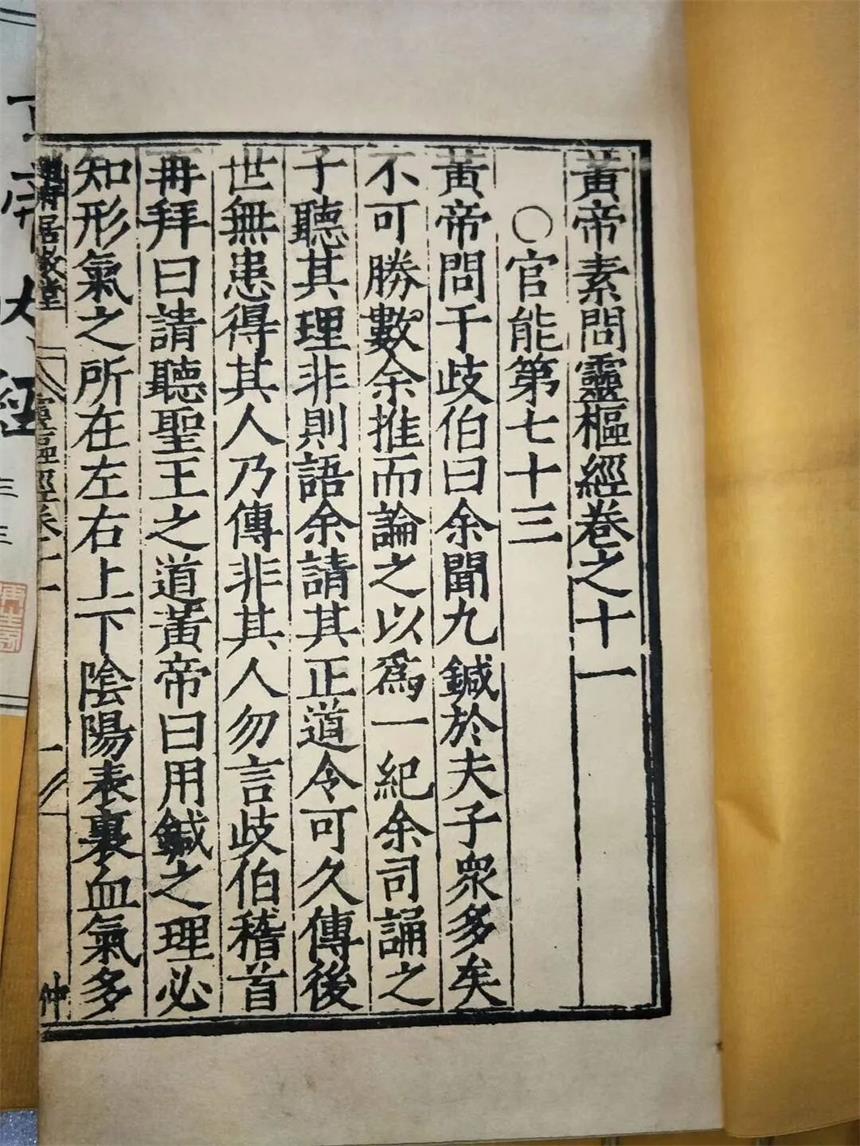 黃帝素問靈樞經卷之十一
○官能第七十三
黃帝問于歧伯曰余聞九鍼於夫子衆多矣
不可勝數余推而論之以爲一紀余司誦之
子聽其理非則語余請其正道令可久傳後
世無患得其人乃傳非其人勿言歧伯稽首
再拜曰請聽聖王之道黃帝曰用鍼之理必
知形氣之所在左右上下陰陽表裏血氣多
居敬堂
靈樞經卷十一
一
仲